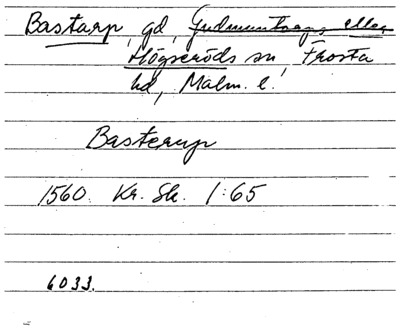 Bastarp, gd, Gudmuntorps eller
Högseröds sn, Frosta
hd, Malm. l.
Basterup
1560. Kr. Sk. 1:65
6033.